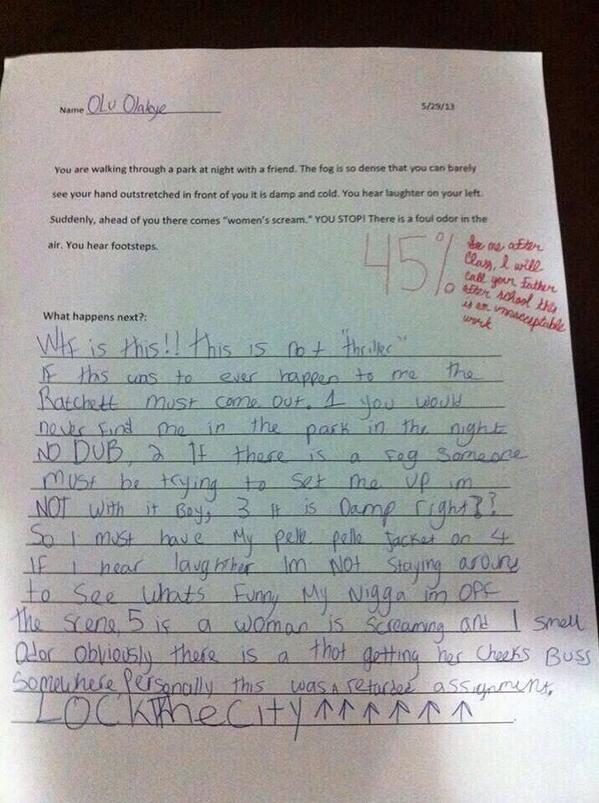 Name OLU Olakye
5/29/13
You are walking through a park at night with a friend. The fog is so dense that you can barely
see your hand outstretched in front of you it is damp and cold. You hear laughter on your left.
Suddenly, ahead of you there comes "women's scream." YOU STOP! There is a foul odor in the
air. You hear footsteps.
45%
See me after
Class, I will
call your Father
after school this
is an unnacceptable
work
What happens next?:
Wtf is this!! this is not "thriller"
If this was to ever happen to me the
Ratchett must come out. 1 you would
never find me in the park in the night
NO DUB, 2 If there is a fog someone
must be trying to set me up im
NOT with it Boy, 3 It is Damp right??
So I must have My pelle pelle Jacket on 4
If I hear laughther Im NOT Staying around
to See whats Funny My Nigga im OFF
the scene, 5 if a woman is Screaming and I smell
Odor obviously there is a thot getting her cheeks Buss
Somewhere Personally this was a retarded assignment.
LOCKTheCity ↑↑↑↑↑↑↑